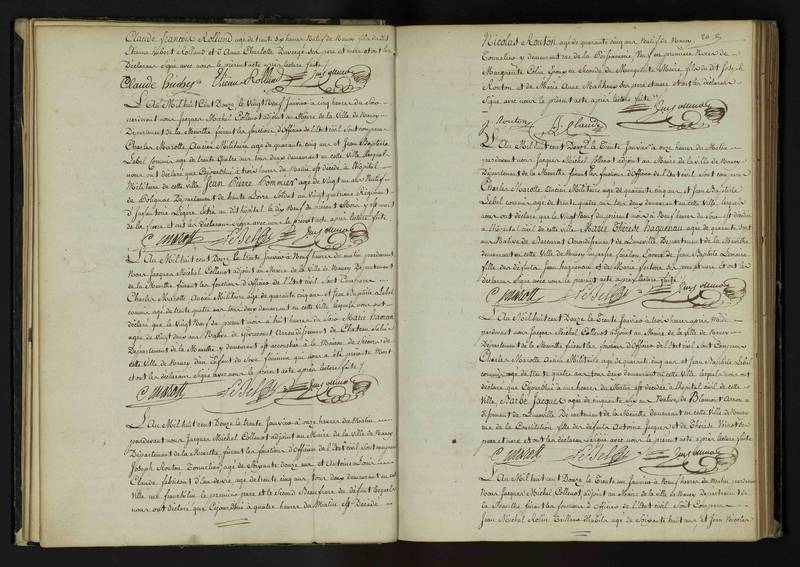 Claude François Rolland agé de trente six heures Natif de Nancy fils du dit
Etienne hubert Rolland et d'Anne Charlotte ses pere et mere et ont les
déclarans Signé avec nous le présent acte après lecture faite
Etienne Rolland
L'An Mil huit Cent Douze, le Vingt Neuf Janvier à cinq heures du Soir
pardevant nous Jacques Michel Collenot adjoint au Maire de la Ville de Nancy
Département de la Meurthe faisant les fonctions d'Officier de l'Etat civil Sont comparus
Charles Marotte Ancien Militaire agé de quarante cinq ans et Jean Baptiste
Lebel Commis agé de trente quatre ans tous deux demeurant en cette Ville lesquels
nous ont déclaré que Cejourd'hui à trois heures du Matin est décédé à l'hôpital
Militaire de cette ville Jean Pierre Pommier agé de Vingt un ans Natif
de Polignac Département de haute Loire Soldat au Vingt quatrième Régiment
d'Infanterie Legère entré au dit hôpital le dix Neuf du présent Mois y est mort
de la fievre et ont les déclarans Signé avec nous le présent acte après lecture faite
C Marott Lebel
L'An Mil huit Cent Douze le trente Janvier à Neuf heures du matin pardevant
Nous Jacques Michel Collenot adjoint au Maire de la Ville de Nancy Département
de la Meurthe faisant les fonctions d'Officier de l'Etat civil Sont Comparus
Charles Marotte Ancien Militaire agé de quarante cinq ans et Jean Baptiste Lebel
commis agé de trente quatre ans tous deux demeurant en cette Ville lesquels nous ont
déclaré que le Vingt Neuf du present mois à huit heures du Soir Marie
agée de Vingt deux ans Arrondissement de Chateau Salins
Département de la Meurthe y demeurant est accouchée à la Maison de Secours de
cette Ville de Nancy d'un Enfant du Sexe féminin qui nous a été présenté Mort
et ont les déclarans Signé avec nous le present acte après lecture faite
C Marott Lebel
L'An Mil huit Cent Douze le trente Janvier à onze heures du Matin
pardevant nous Jacques Michel Collenot adjoint au Maire de la Ville de Nancy
Département de la Meurthe faisant les fonctions d'Officier de l'Etat civil Sont comparus
Joseph Routon Tonnelier agé de Soixante douze ans et Antoine
Claude fabricant agé de trente cinq ans, tous deux demeurant en cette
Ville le premier pere et le Second Beaufrere du défunt lesquels
nous ont déclaré que Cejourd'hui à quatre heures du Matin est Décédé
Nicolas Routon agé de quarante cinq ans Natif de Nancy
Tonnelier y demeurant rue de la Poissonnerie, Veuf en premiere Noces de
Marguerite Colin Epoux en Seconde de Marguerite fils du dit Joseph
Routon et de Marie Anne ses pere et mere et ont les déclarans
Signé avec nous le présent acte après lecture faite
J Routon A. Claude
L'An Mil huit Cent Douze le trente Janvier à onze heures du Matin
pardevant nous Jacques Michel Collenot adjoint au Maire de la Ville de Nancy
Département de la Meurthe faisant les fonctions d'Officier de l'Etat civil Sont comparus
Charles Marotte Ancien Militaire agé de quarante cinq ans et Jean Baptiste
Lebel commis agé de trente quatre ans tous deux demeurant en cette Ville, lesquels
nous ont déclaré que le Vingt Neuf du présent mois à Neuf heures du Soir est décédée
à l'hôpital civil de cette ville Marie Thérèse haguenau agée de quarante sept
ans Native de Baccarat Arrondissement de Lunéville Département de la Meurthe
demeurant en cette Ville de Nancy Epouse de Jean Baptiste Lemaire
fille des défunts Jean haguenau et de Marie ses pere et mere et ont les
déclarans Signé avec nous le présent acte après lecture faite
C Marott Lebel
L'An Mil huit Cent Douze le Trente Janvier à trois heures après Midi
pardevant nous Jacques Michel Collenot adjoint au Maire de la Ville de Nancy
Département de la Meurthe faisant les fonctions d'Officier de l'Etat civil Sont Comparus
Charles Marotte Ancien Militaire agé de quarante cinq ans, et Jean Baptiste Lebel
commis agé de trente quatre ans tous deux demeurant en cette Ville lesquels nous ont
déclaré que Cejourd'hui à une heure du Matin est décédée à l'hôpital civil de cette
Ville, Barbe Jacques agée de cinquante six ans Native de Blamont Arron-
dissement de Lunéville Département de la Meurthe demeurant en cette Ville de Nancy
rue de la Constitution fille des défunts Antoine Jacques et de Thérèse ses
pere et mere et ont les déclarans Signé avec nous le présent acte après lecture faite
C Marott Lebel
L'An Mil huit Cent Douze le Trente un Janvier à Neuf heures du Matin pardevant
Nous Jacques Michel Collenot adjoint au Maire de la Ville de Nancy Département de
la Meurthe faisant les fonctions d'Officier de l'Etat civil Sont Comparus
Jean Michel Tailleur d'habits agé de Soixante huit ans, et Jean Nicolas